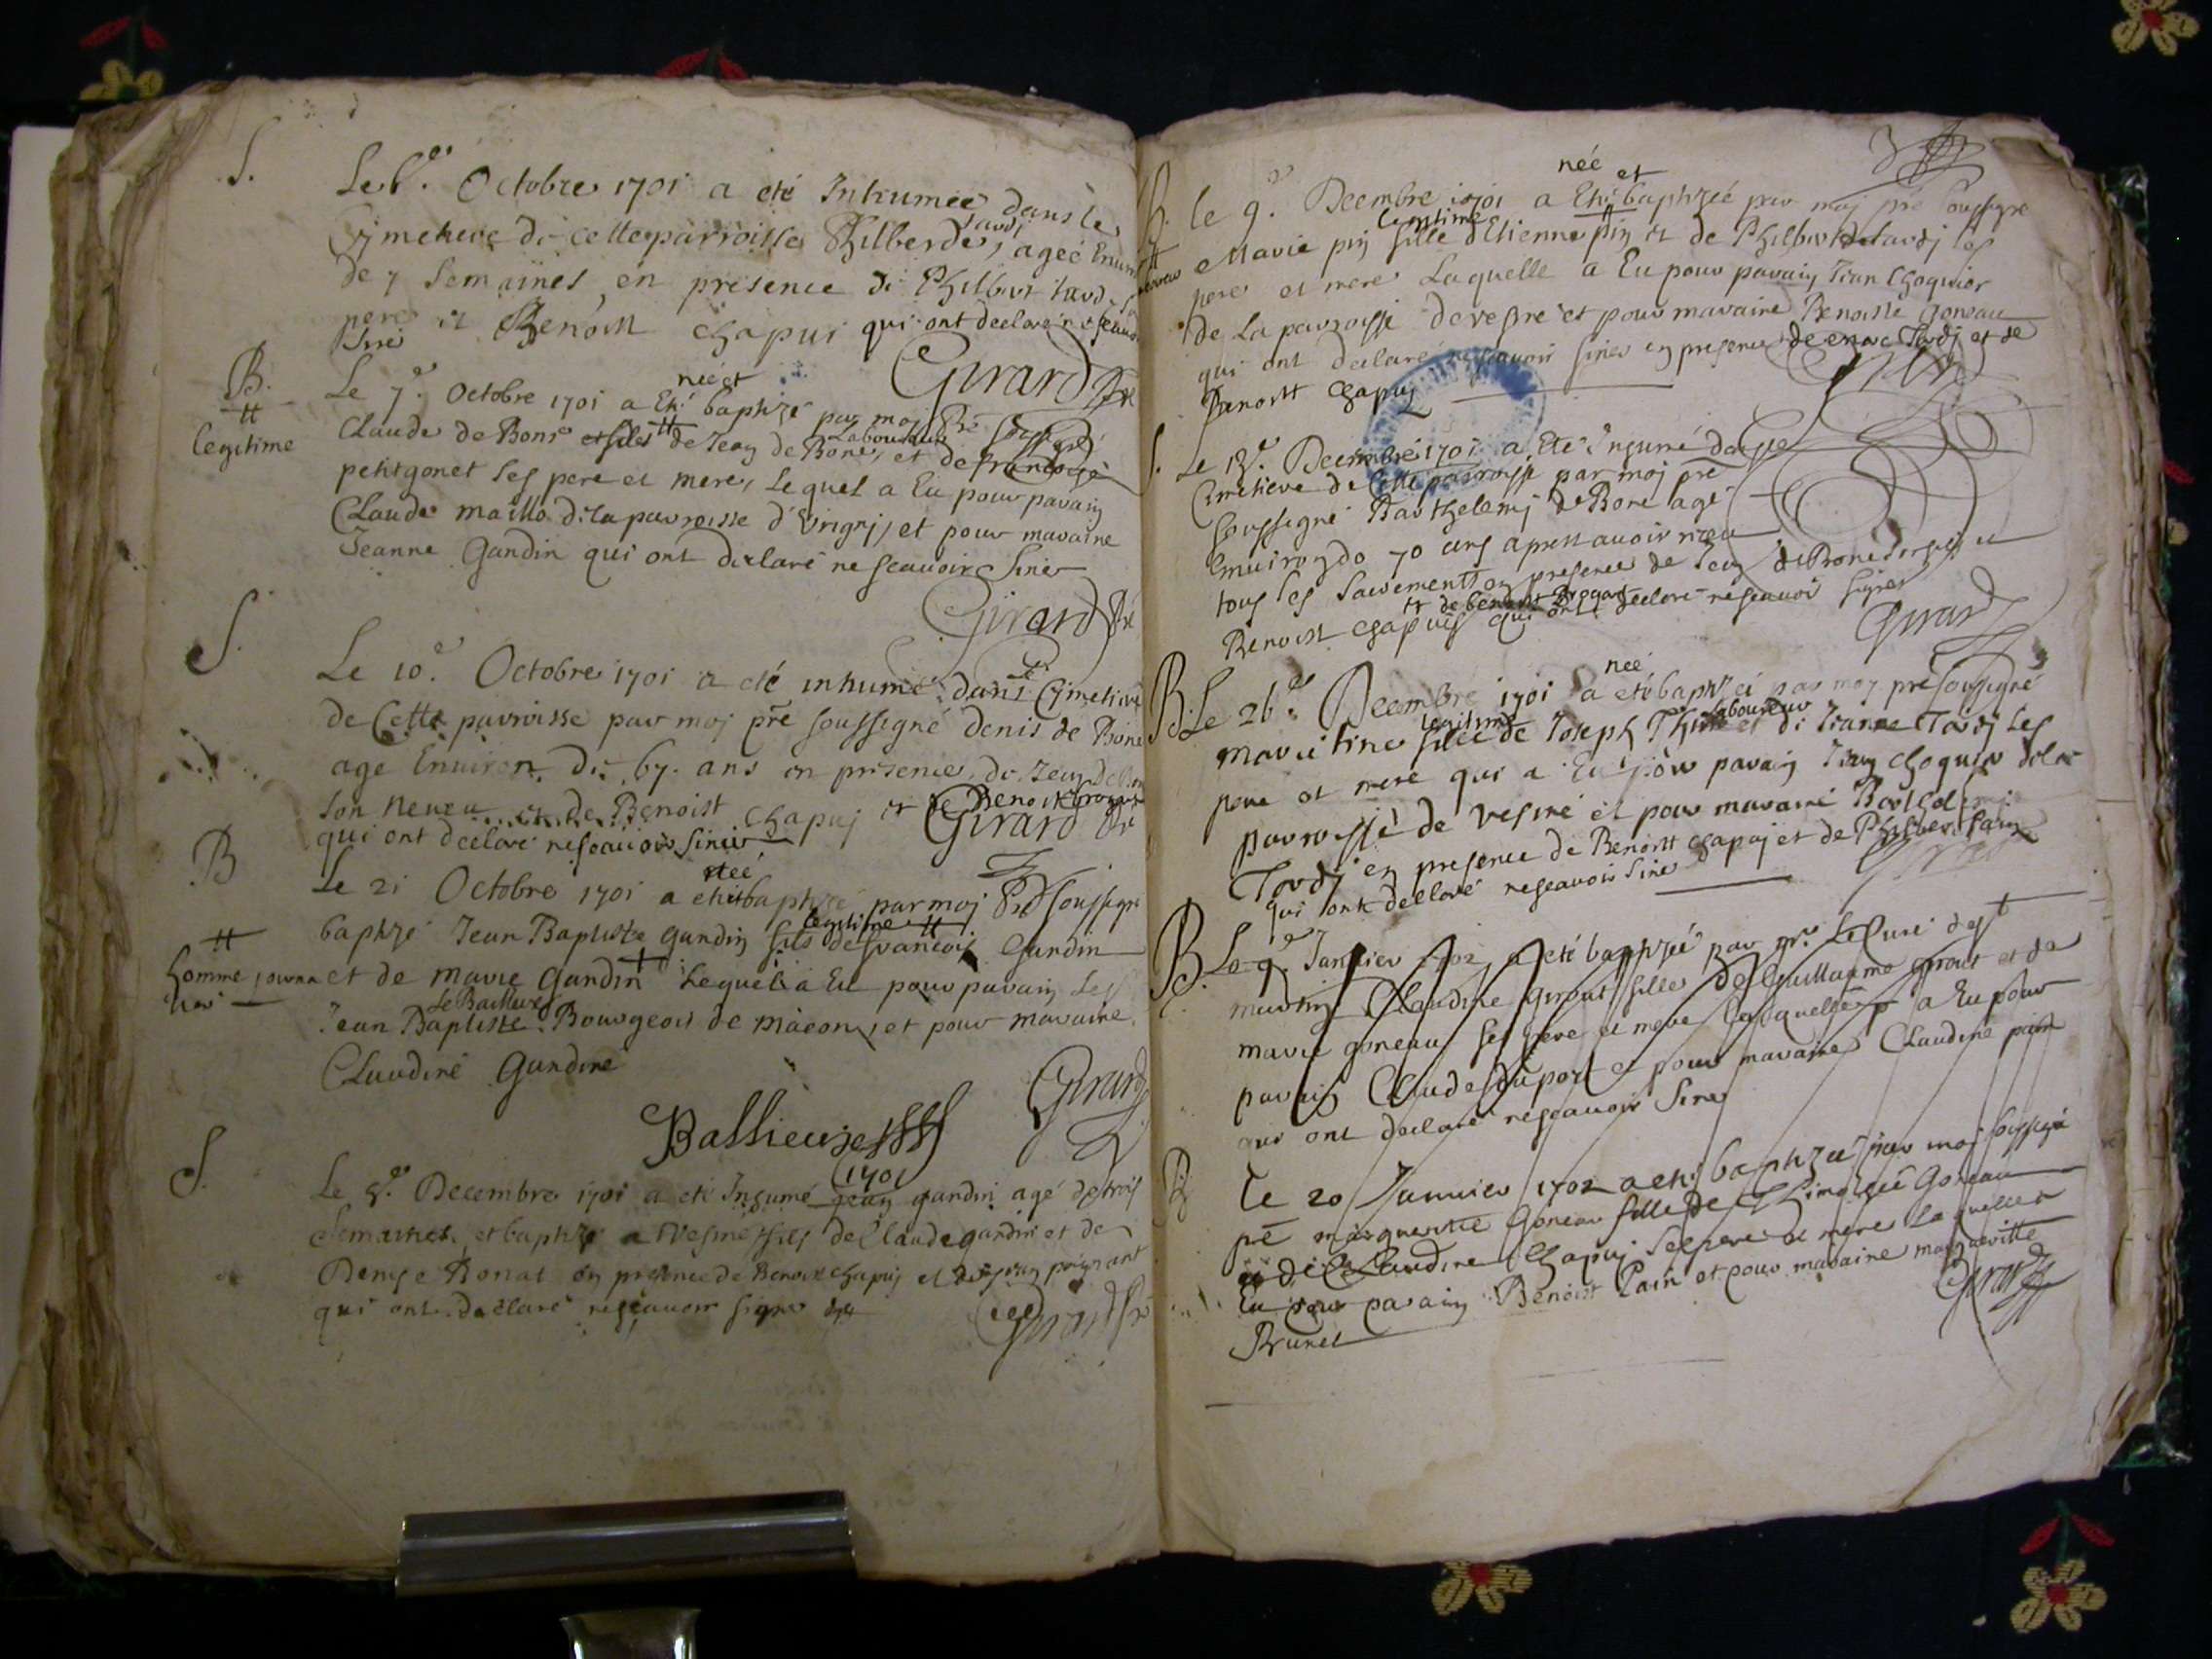 S.
Le 6.e Octobre 1701 a eté Inhumée dans le
Cymetiere de cette parroisse Philberde, tardi agée
de 7 semaines en presence de Philbert
pere et Benoist chapui qui ont declaré ne
sine
Girard
B.
legitime
Le 7.e Octobre 1701 a Eté née et baptizé par moj
Claude de Bone et fils de Jean de Bone, Laboureur et de francoise
petitgonet ses pere et mere, Lequel a Eu pour parain
Claude maillo de la parroisse d'Urigny, et pour maraine
Jeanne Gandin qui ont declaré ne scauoir sine
Girard Pre
S.
Le 10.e Octobre 1701 a eté inhumé dans Le Cymetiere
de Cette parroisse par moj pre soussigné denis de Bone
agé Enuiron de 67. ans en presence de Jean
son neueu et de Benoist chapuj et de Benoist
qui ont declaré ne scauoir siner
Girard Pre
B
homme journa
lier
Le 21 Octobre 1701 a eté née baptizé par moj Pre soussigné
baptizé Jean Baptiste gandin fils legitime de francois Gandin
et de marie Gandin Lequel a Eu pour parain Le
Jean Baptiste Le Baillieux Bourgeois de mâcon, et pour maraine
Claudine Gandine
Girard
S.
Le 5.e Decembre 1701 a eté Inhumé Jean gandin agé de trois
1701
semaines et baptizé a Vesine fils de Claude gandin et de
Denise Bonat en presence de Benoist chapuj et de Jean
qui ont declaré ne scauoir signe
B.
le 9.e Decembre 1701 a Eté née et baptizée par moj pre soussigné
Marie pin fille legitime d'Etienne pin et de Philberde tardj ses
pere et mere Laquelle a Eu pour parain Jean choquier
de La parroisse de vesine et pour maraine Benoiste goneau
qui ont declaré ne scauoir siner en presence de Tardj et de
Benoist chapuj
S.
Le Decembre 1701 a Eté Inhumé dans le
Cimetiere de Cette parroisse par moj pre
soussigné Barthelemj de Bone agé
Enuiron de 70 ans apres auoir receu
tous ses sacrements en presence de Jean de Bone et
Benoist chapuis et de Benoist qui ont declaré ne scauoir signer
Girard
B.
Le 26.e Decembre 1701 a née eté baptizéé par moy pre soussigné
marie fine fille legitime de Joseph laboureur et de Jeanne Tardj ses
pere et mere qui a Eu pour parain Jean choquier de la
parroisse de vesine et pour maraine
Tardj en presence de Benoist chapuj et de Philber
qui ont declaré ne scauoir sine
B.
Le 9.e Januier 1702 a eté baptizée par mr. Le Curé de st
martin Claudine girout fille de Guillaume girout et de
marie goneau ses pere et mere laquelle a Eu pour
parain Claude duport et pour maraine Claudine
qui ont declaré ne scauoir sine
B
Le 20 Januier 1702 a eté baptizée par moj soussigné
pre marguerite Goneau fille de Goneau
et de Claudine Chapuj ses pere et mere laquelle a
Eu pour parain Benoist Pain et pour maraine margueritte
Brunet
Girard